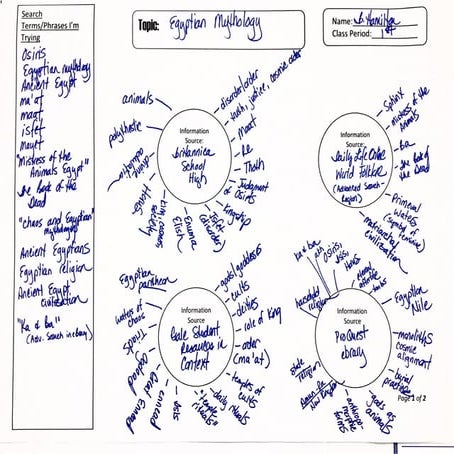 Search
Terms/Phrases I'm
Trying
Osiris
Egyptian mythology
Ancient Egypt
ma'at
maat
isfet
"Mistress of the
Animals Egypt"
the Book of the
Dead
"chaos and Egyptian"
mythology
Ancient Egyptians
Egyptian religion
Ancient Egypt
civilization
"Ka & ba"
(Adv. Search in ebrary)
Topic: Egyptian Mythology
Name:
Class Period: 1st
animals
polytheistic
disorder/order
truth, justice, cosmic order
maat
Re
Thoth
Judgment
of Osiris
kingship
Isfet
(disorder)
Enuma
Elish
Horus
Information
Source:
Britannica
School
High
Sphinx
mistress of the
Animals
ba
the Book of the
Dead
Primeval
waters
(symbol of feminine)
matriarchal
civilization
Information
Source:
Daily Life Online
World Folklore
(Advanced Search -
Region)
Egyptian
pantheon
waters of
chaos
gods/goddesses
cults
deities
role of King
order
(ma'at)
temples of
cults
daily rituals
"temple
rituals"
Isis
ennead
Information
Source
Gale Student
Resources in
Context
Ka & ba
Osiris,
Isis,
Horus
household religion
state
religion
Egyptian
Nile
monoliths
cosmic
alignment
burial
practices
gods as
animals
anthropo-
morphic
forms
Information
Source:
ProQuest
ebrary
Page 1 of 2